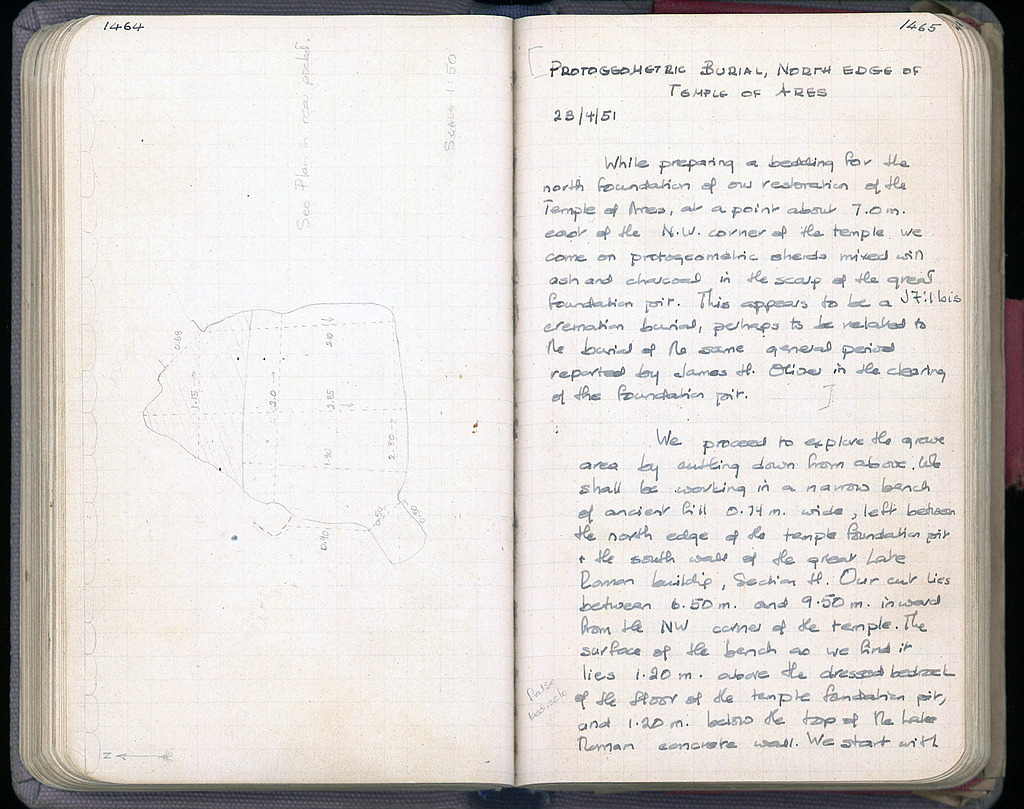 1464
See Plan in rear pocket.
SCALE 1:50
0.68
1.15
2.0
2.10
2.85
1.90
2.80
0.90
0.50
N
1465
[
PROTOGEOMETRIC BURIAL, NORTH EDGE OF
TEMPLE OF ARES
28/4/51
While preparing a bedding for the
north foundation of our restoration of the
Temple of Ares, at a point about 7.0 m.
east of the N.W. corner of the temple we
come on protogeometric sherds mixed with
ash and charcoal in the scarp of the great
foundation pit. This appears to be a J7:1 bis
cremation burial, perhaps to be related to
the burial of the same general period
reported by James H. Oliver in the clearing
of the foundation pit. ]
We proceed to explore the grave
area by cutting down from above. We
shall be working in a narrow bench
of ancient fill 0.74 m. wide, left between
the north edge of the temple foundation pit
+ the south wall of the great Late
Roman building, Section H. Our cut lies
between 6.50 m. and 9.50 m. inward
from the NW corner of the temple. The
surface of the bench as we find it
lies 1.20 m. above the dressed bedrock
False
bedrock
of the floor of the temple foundation pit,
and 1.20 m. below the top of the Late
Roman concrete wall. We start with